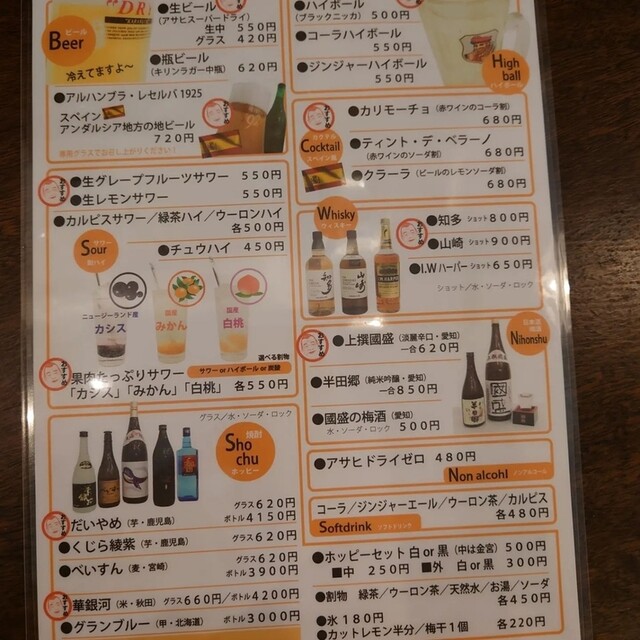 Beer ビール
冷えてますよ～
●生ビール
(アサヒスーパードライ)
生中 550円
グラス 420円
●瓶ビール
(キリンラガー中瓶) 620円
●アルハンブラ・レセルバ1925
スペイン
アンダルシア地方の地ビール
720円
専用グラスでお召し上がりください!
おすすめ
●生グレープフルーツサワー 550円
●生レモンサワー 550円
●カルピスサワー/緑茶ハイ/ウーロンハイ
各500円
Sour サワー
●チュウハイ 450円
ニュージーランド産
カシス
国産
みかん
国産
白桃
選べる割物
サワー or ハイボール or 炭酸
果肉たっぷりサワー
「カシス」「みかん」「白桃」 各550円
グラス/水・ソーダ・ロック
Sho chu 焼酎
ホッピー
グラス620円
●だいやめ (芋・鹿児島) ボトル4150円
グラス620円
●くじら綾紫 (芋・鹿児島)
グラス620円
●べいすん (麦・宮崎) ボトル3900円
●華銀河 (米・秋田) グラス660円/ボトル4200円
●グランブルー (甲・北海道) ボトル3000円
●ハイボール
(ブラックニッカ) 500円
●コーラハイボール
550円
●ジンジャーハイボール
550円
High ball
ハイボール
カクテル
Cocktail
スペイン風
●カリモーチョ (赤ワインのコーラ割)
680円
●ティント・デ・ベラーノ
(赤ワインのソーダ割) 680円
●クラーラ (ビールのレモンソーダ割)
680円
Whisky
ウィスキー
●知多 ショット800円
●山崎 ショット900円
●I.Wハーパー ショット650円
ショット/水・ソーダ・ロック
日本酒
梅酒
Nihonshu
●上撰國盛 (淡麗辛口・愛知)
一合620円
●半田郷 (純米吟醸・愛知)
一合850円
●國盛の梅酒 (愛知)
水・ソーダ・ロック 500円
●アサヒドライゼロ 480円
Non alcohl ノンアルコール
コーラ/ジンジャーエール/ウーロン茶/カルピス
各480円
Softdrink ソフトドリンク
●ホッピーセット 白or黒 (中は金宮) 500円
■中 250円 ■外 白or黒 300円
●割物 緑茶/ウーロン茶/天然水/お湯/ソーダ
各450円
●氷 180円
●カットレモン半分/梅干1個 各220円